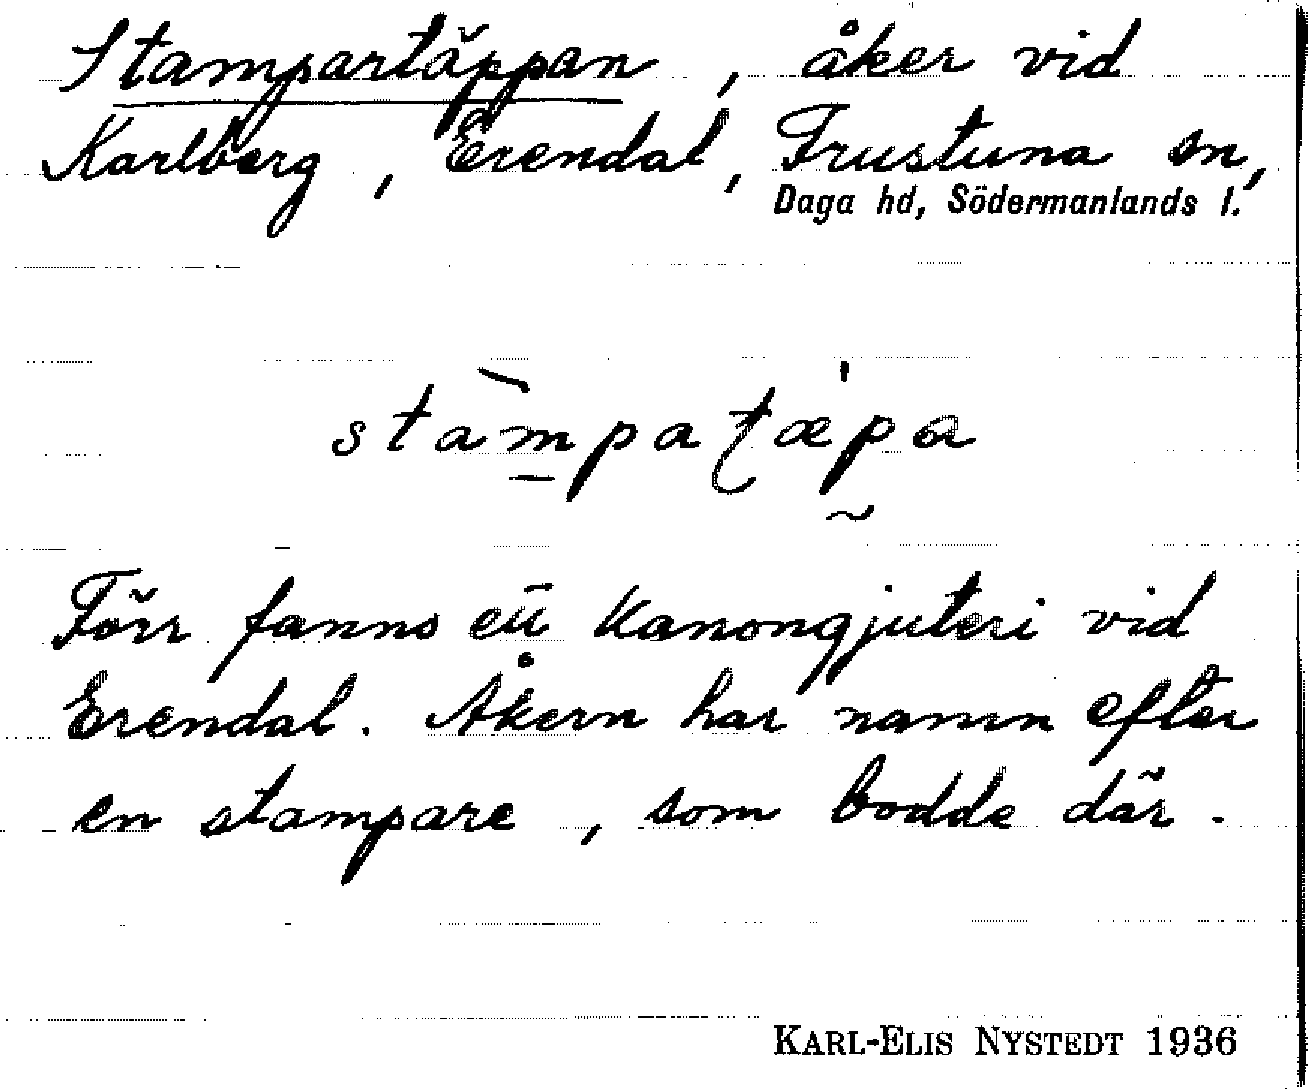 Stampartäppan, åker vid
Karlberg, Erendal, Frustuna sn,
Daga hd, Södermanlands l.
stàm̲patæ̀pa
Förr fanns ett kanongjuteri vid
Erendal. Åkern har namn efter
en stampare, som bodde där.
KARL-ELIS NYSTEDT 1936